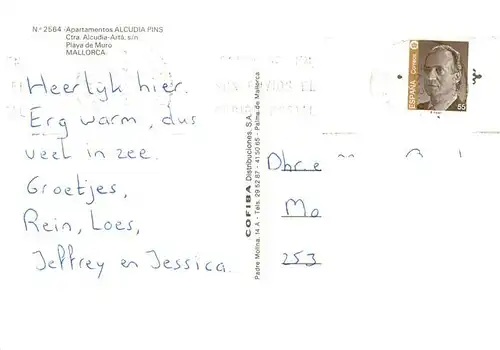 N.º 2564 - Apartamentos ALCUDIA PINS
Ctra. Alcudia-Artá, s/n
Playa de Muro
MALLORCA
Heerlijk hier.
Erg warm, dus
veel in zee.
Groetjes,
Rein, Loes,
Jeffrey en Jessica.
COFIBA Distribuciones, S.A.
Padre Molina, 14 A - Tels. 29 52 87 - 41 50 65 - Palma de Mallorca
ESPAÑA
Correos
55
Dhr. e
Mo
253